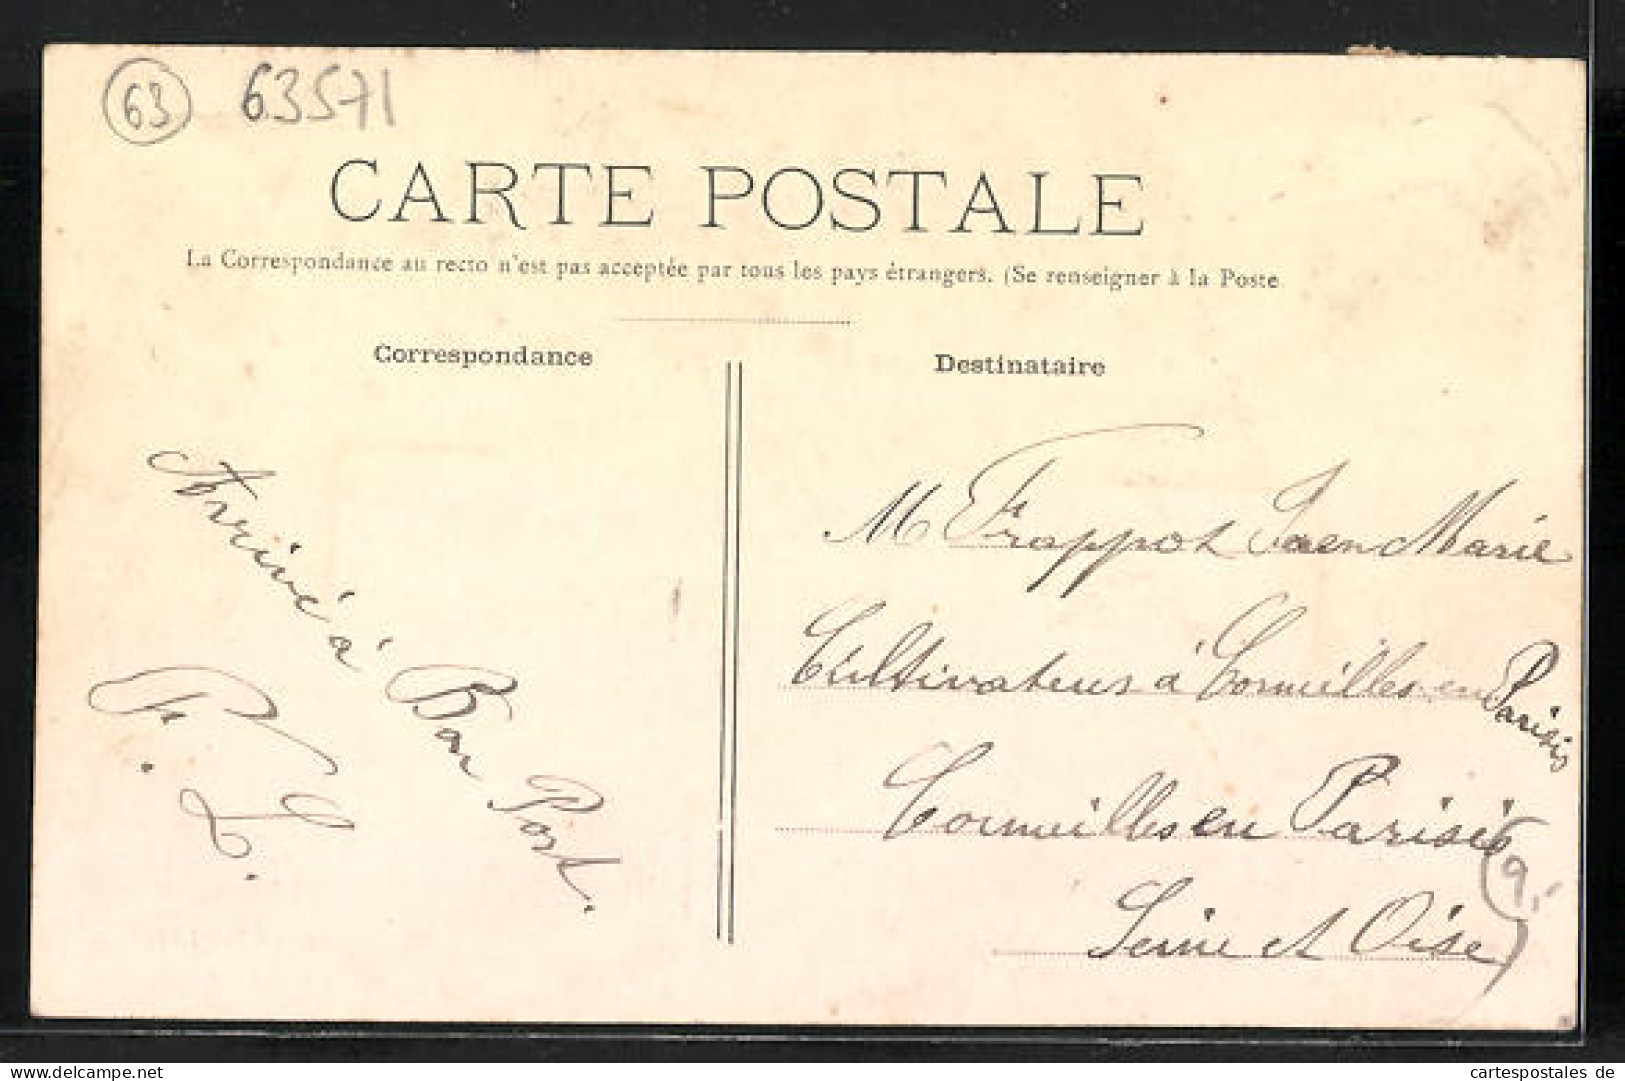 63 63571
CARTE POSTALE
La Correspondance au recto n'est pas acceptée par tous les pays étrangers. (Se renseigner à la Poste
Correspondance
Arrivé à Bon Port.
P. L.
Destinataire
M Frappot Jaen Marie
Cultivateur à Cormeilles en Parisis
Cormeilles en Parisis
Seine et Oise
9
cartespostales de